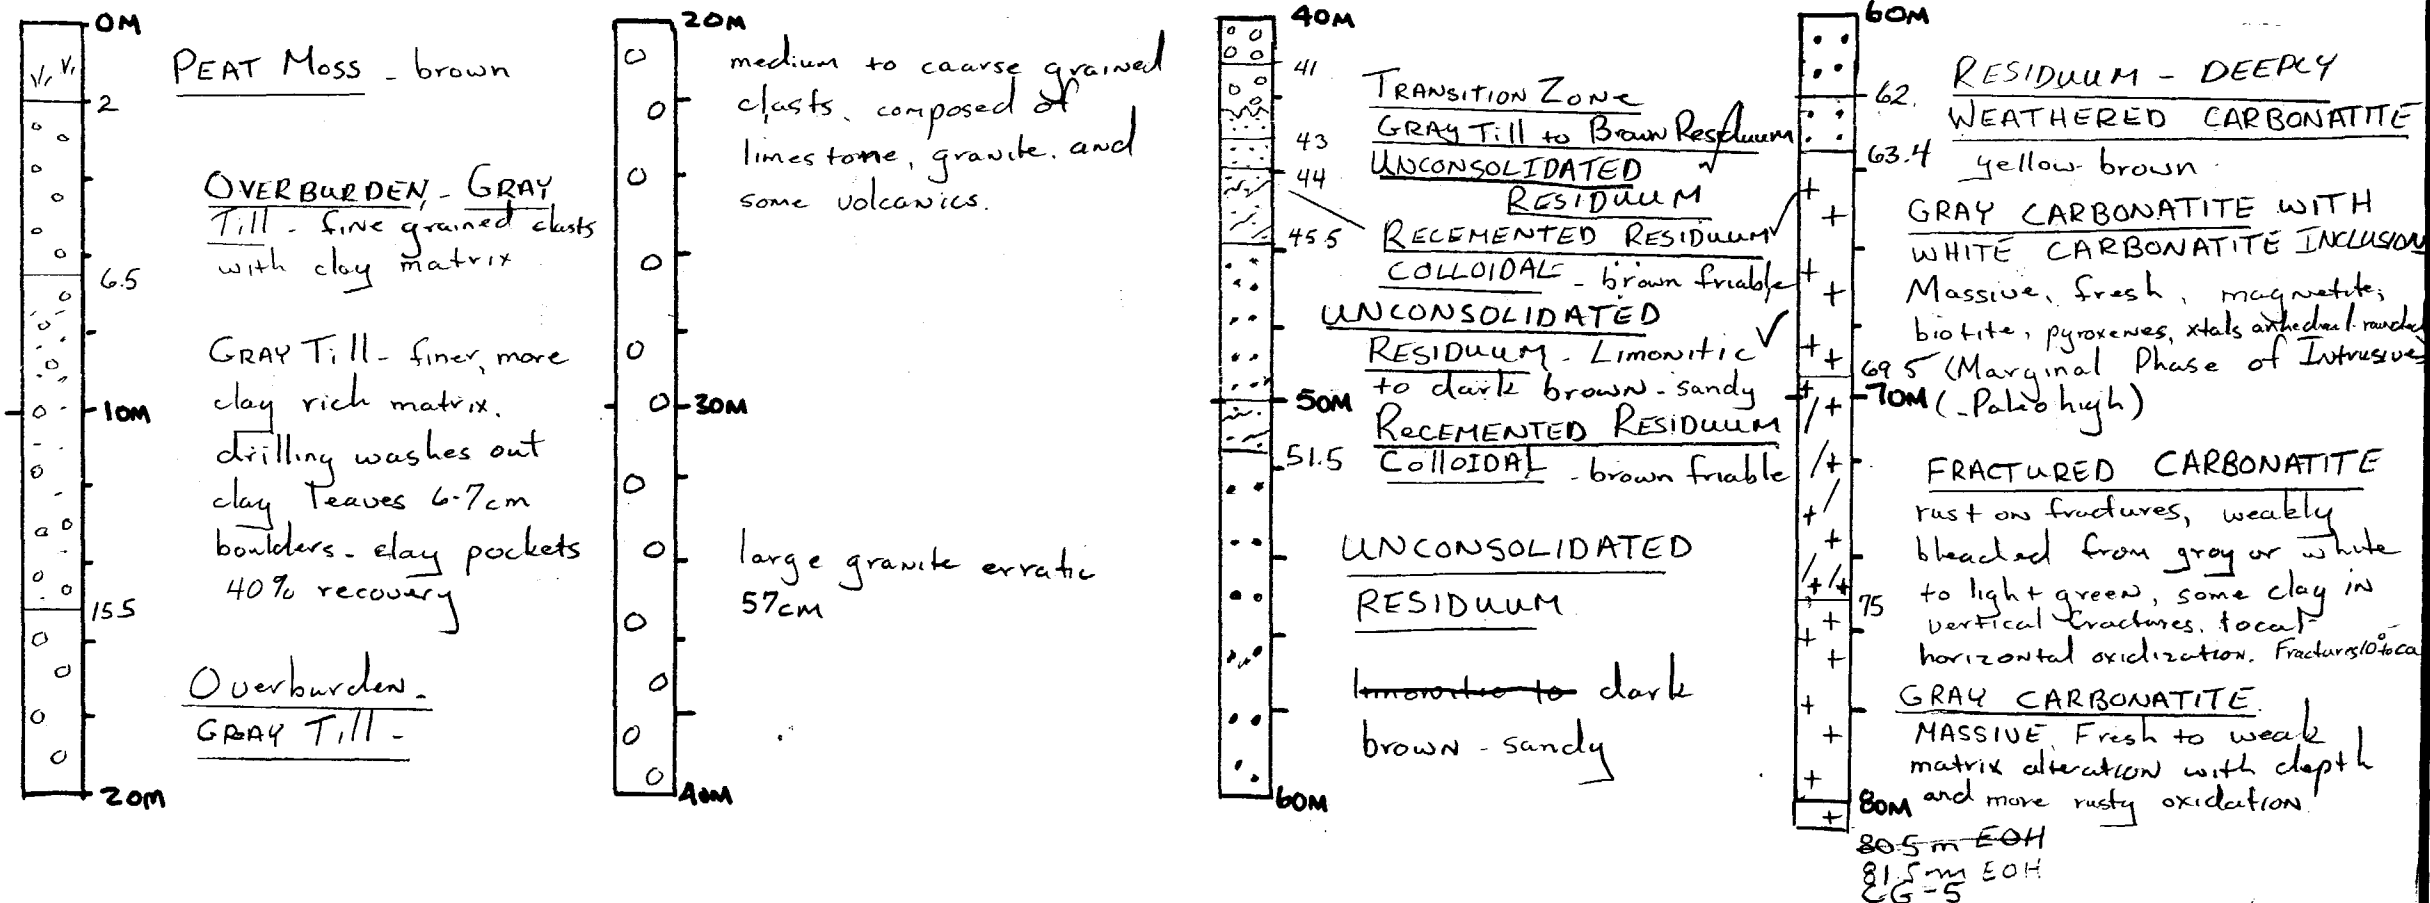 0M
PEAT MOSS - brown
2
OVERBURDEN - GRAY
Till - fine grained clasts
with clay matrix
6.5
GRAY Till - finer, more
clay rich matrix.
10M
drilling washes out
clay leaves 6-7cm
boulders - clay pockets
40% recovery
15.5
Overburden -
GRAY Till -
20M
20M
medium to coarse grained
clasts, composed of
limestone, granite, and
some volcanics.
30M
large granite erratic
57cm
40M
40M
41
TRANSITION ZONE
GRAY Till to Brown Residuum
43
UNCONSOLIDATED
44
RESIDUUM
45.5
RECEMENTED RESIDUUM
COLLOIDAL - brown friable
UNCONSOLIDATED
RESIDUUM - Limonitic
to dark brown - sandy
50M
RECEMENTED RESIDUUM
51.5
COLLOIDAL - brown friable
UNCONSOLIDATED
RESIDUUM
limonitic to dark
brown - sandy
60M
60M
RESIDUUM - DEEPLY
62.
WEATHERED CARBONATITE
63.4
yellow-brown
GRAY CARBONATITE WITH
WHITE CARBONATITE INCLUSION
Massive, fresh, magnetite,
biotite, pyroxenes, xtals anhedral-rounded
69.5 (Marginal Phase of Intrusive)
70M (-Paleohigh)
FRACTURED CARBONATITE
rust on fractures, weakly
bleached from gray or white
to light green, some clay in
75
vertical fractures, local
horizontal oxidization. Fractures 10° to ca
GRAY CARBONATITE
MASSIVE, Fresh to weak
matrix alteration with depth
80M and more rusty oxidation.
80.5m EOH
81.5m EOH
CG-5